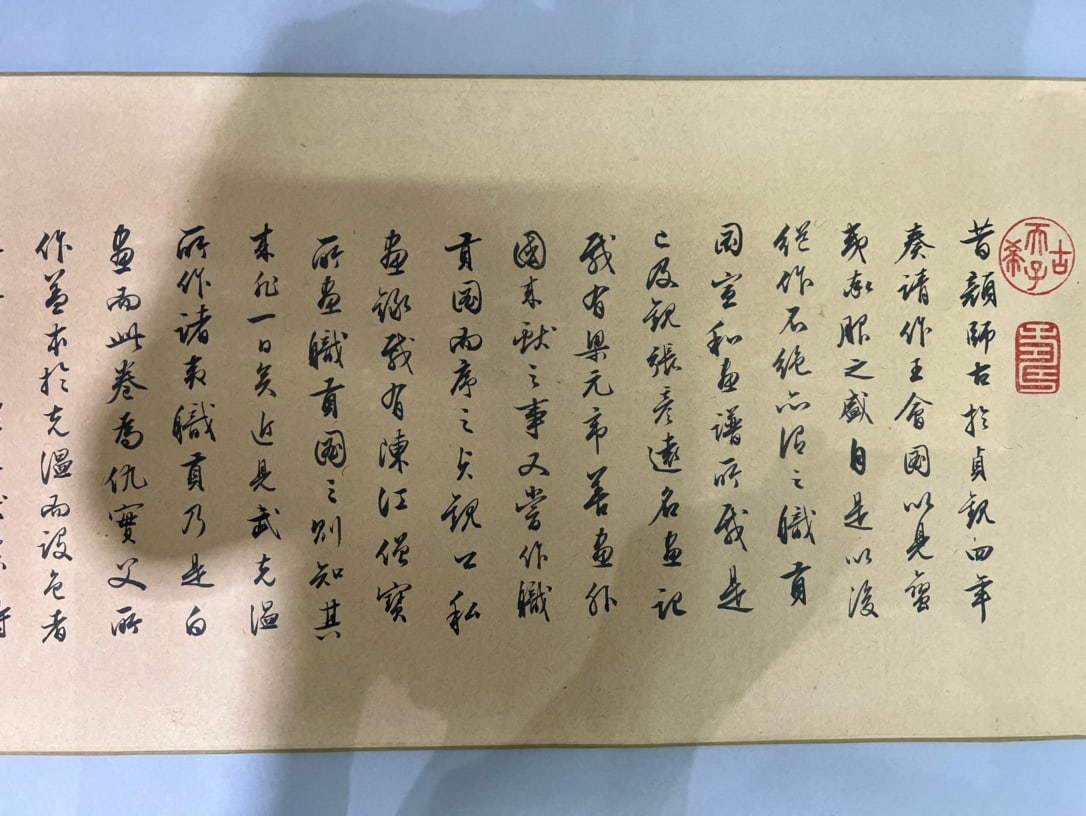 古希天子
壽
昔顏師古於貞觀四年
奏請作王會圖以見蠻
夷率服之盛自是以後
繼作不絕亦謂之職貢
圖宣和畫譜所載是
已及觀張彥遠名畫記
載有梁元帝善畫外
國來獻之事又嘗作職
貢圖而序之貞觀公私
畫錄載有陳江僧寶
所畫職貢圖三則知其
來非一日矣近見武克溫
所作諸夷職貢乃是白
畫而此卷為仇實父所
作蓋本於克溫而設色者